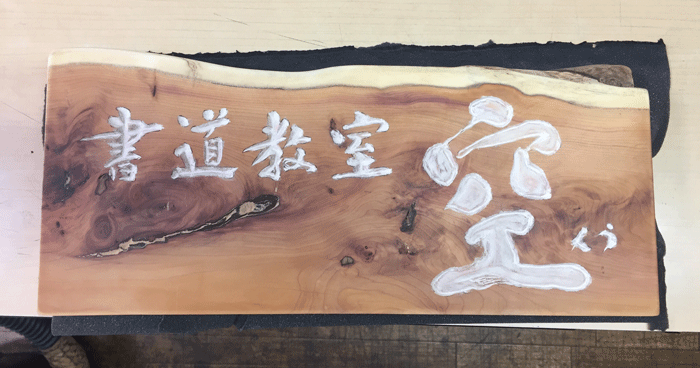 書道教室 空 くう